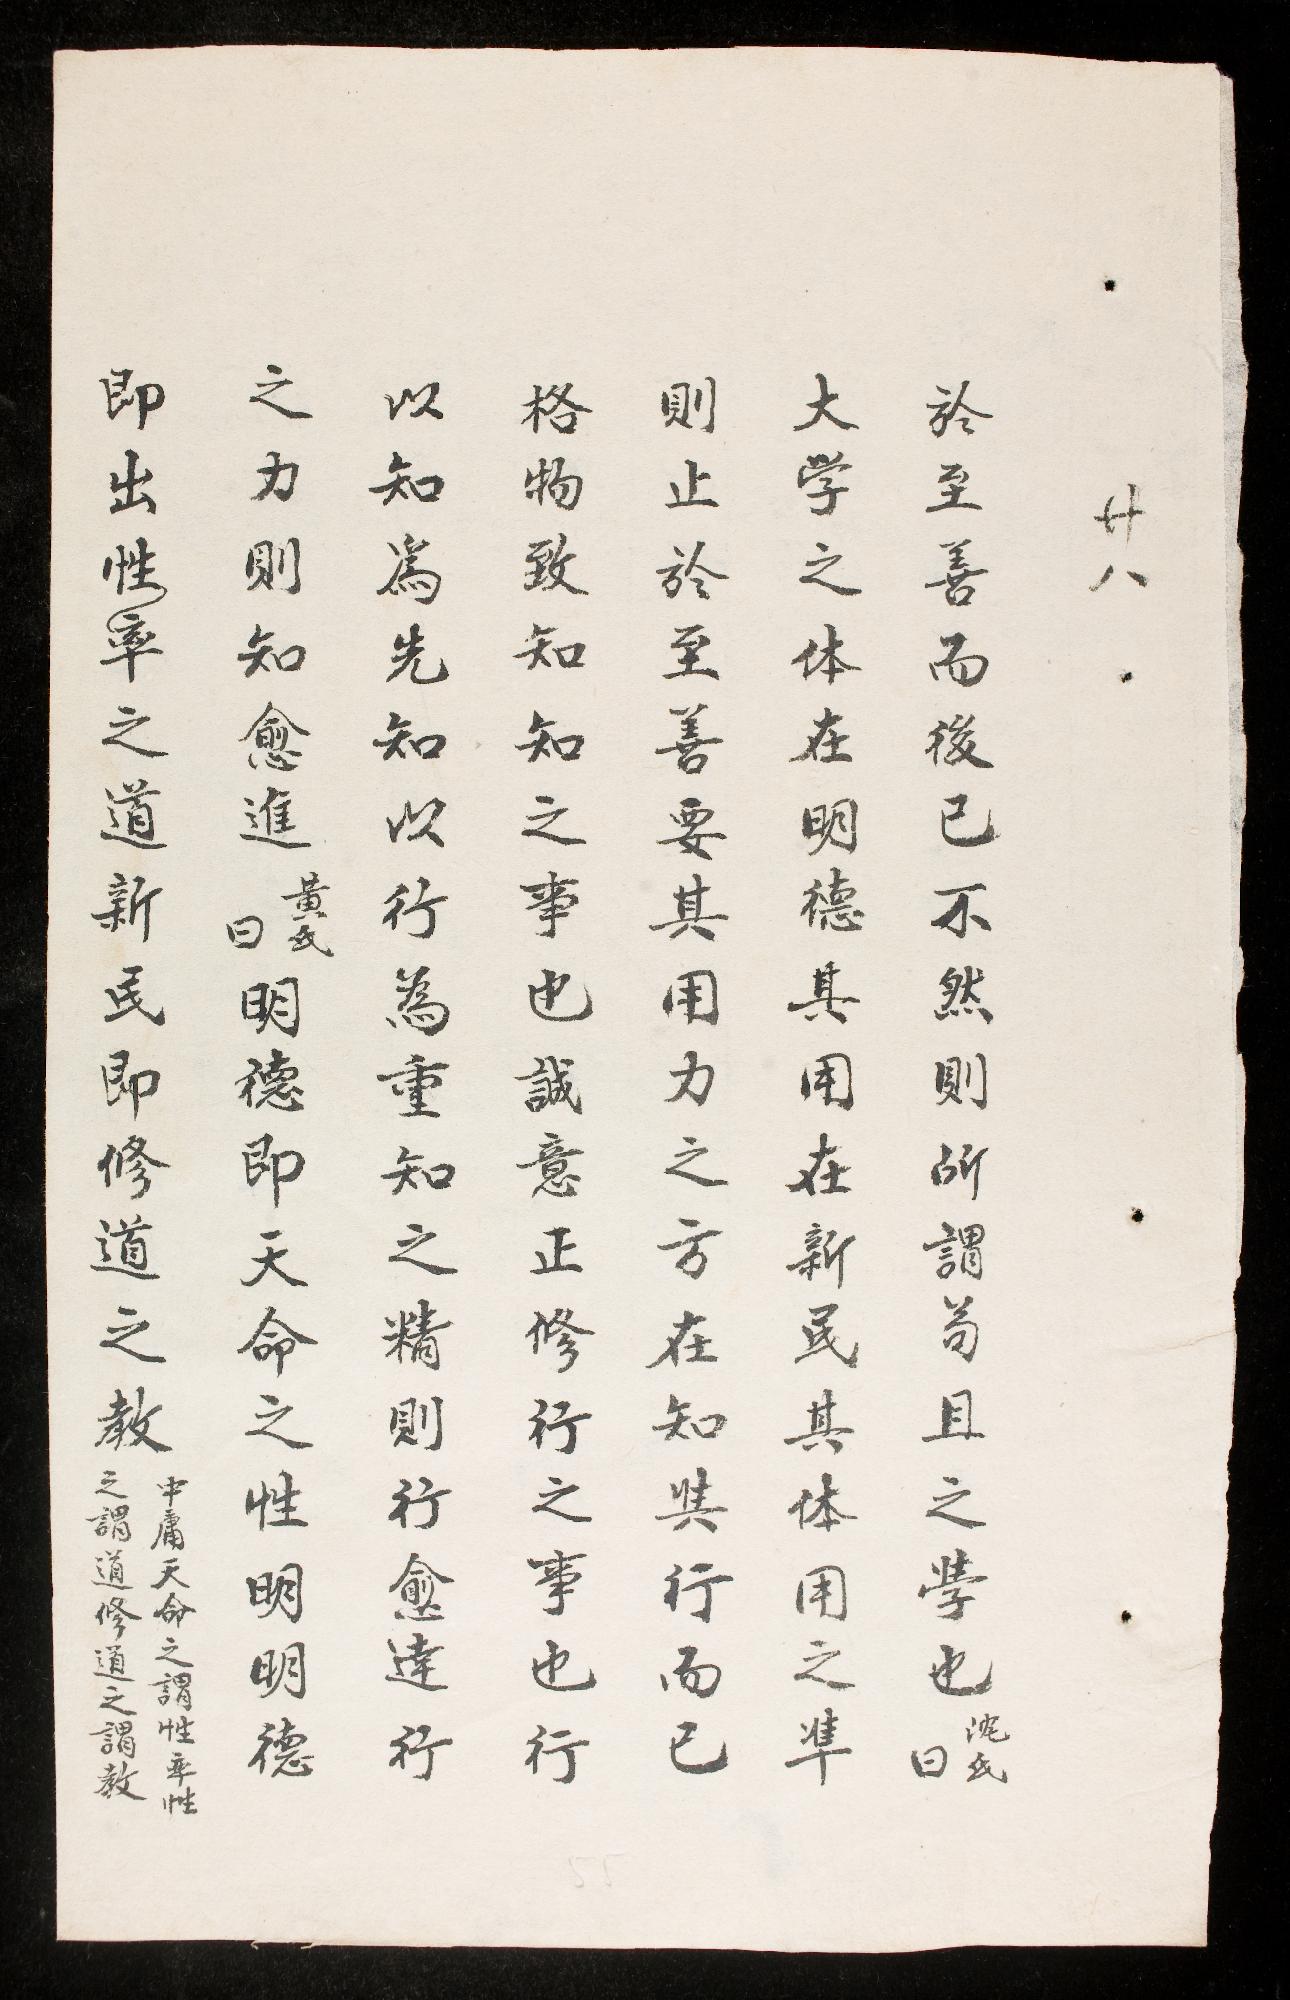 廿八
於至善而後已不然則所謂苟且之學也沈氏曰
大学之体在明德其用在新民其体用之準
則止於至善要其用力之方在知與行而已
格物致知知之事也誠意正修行之事也行
以知爲先知以行為重知之精則行愈達行
之力則知愈進黃氏曰明德即天命之性明明德
即出性率之道新民即修道之教中庸天命之謂性率性
之謂道修道之謂教